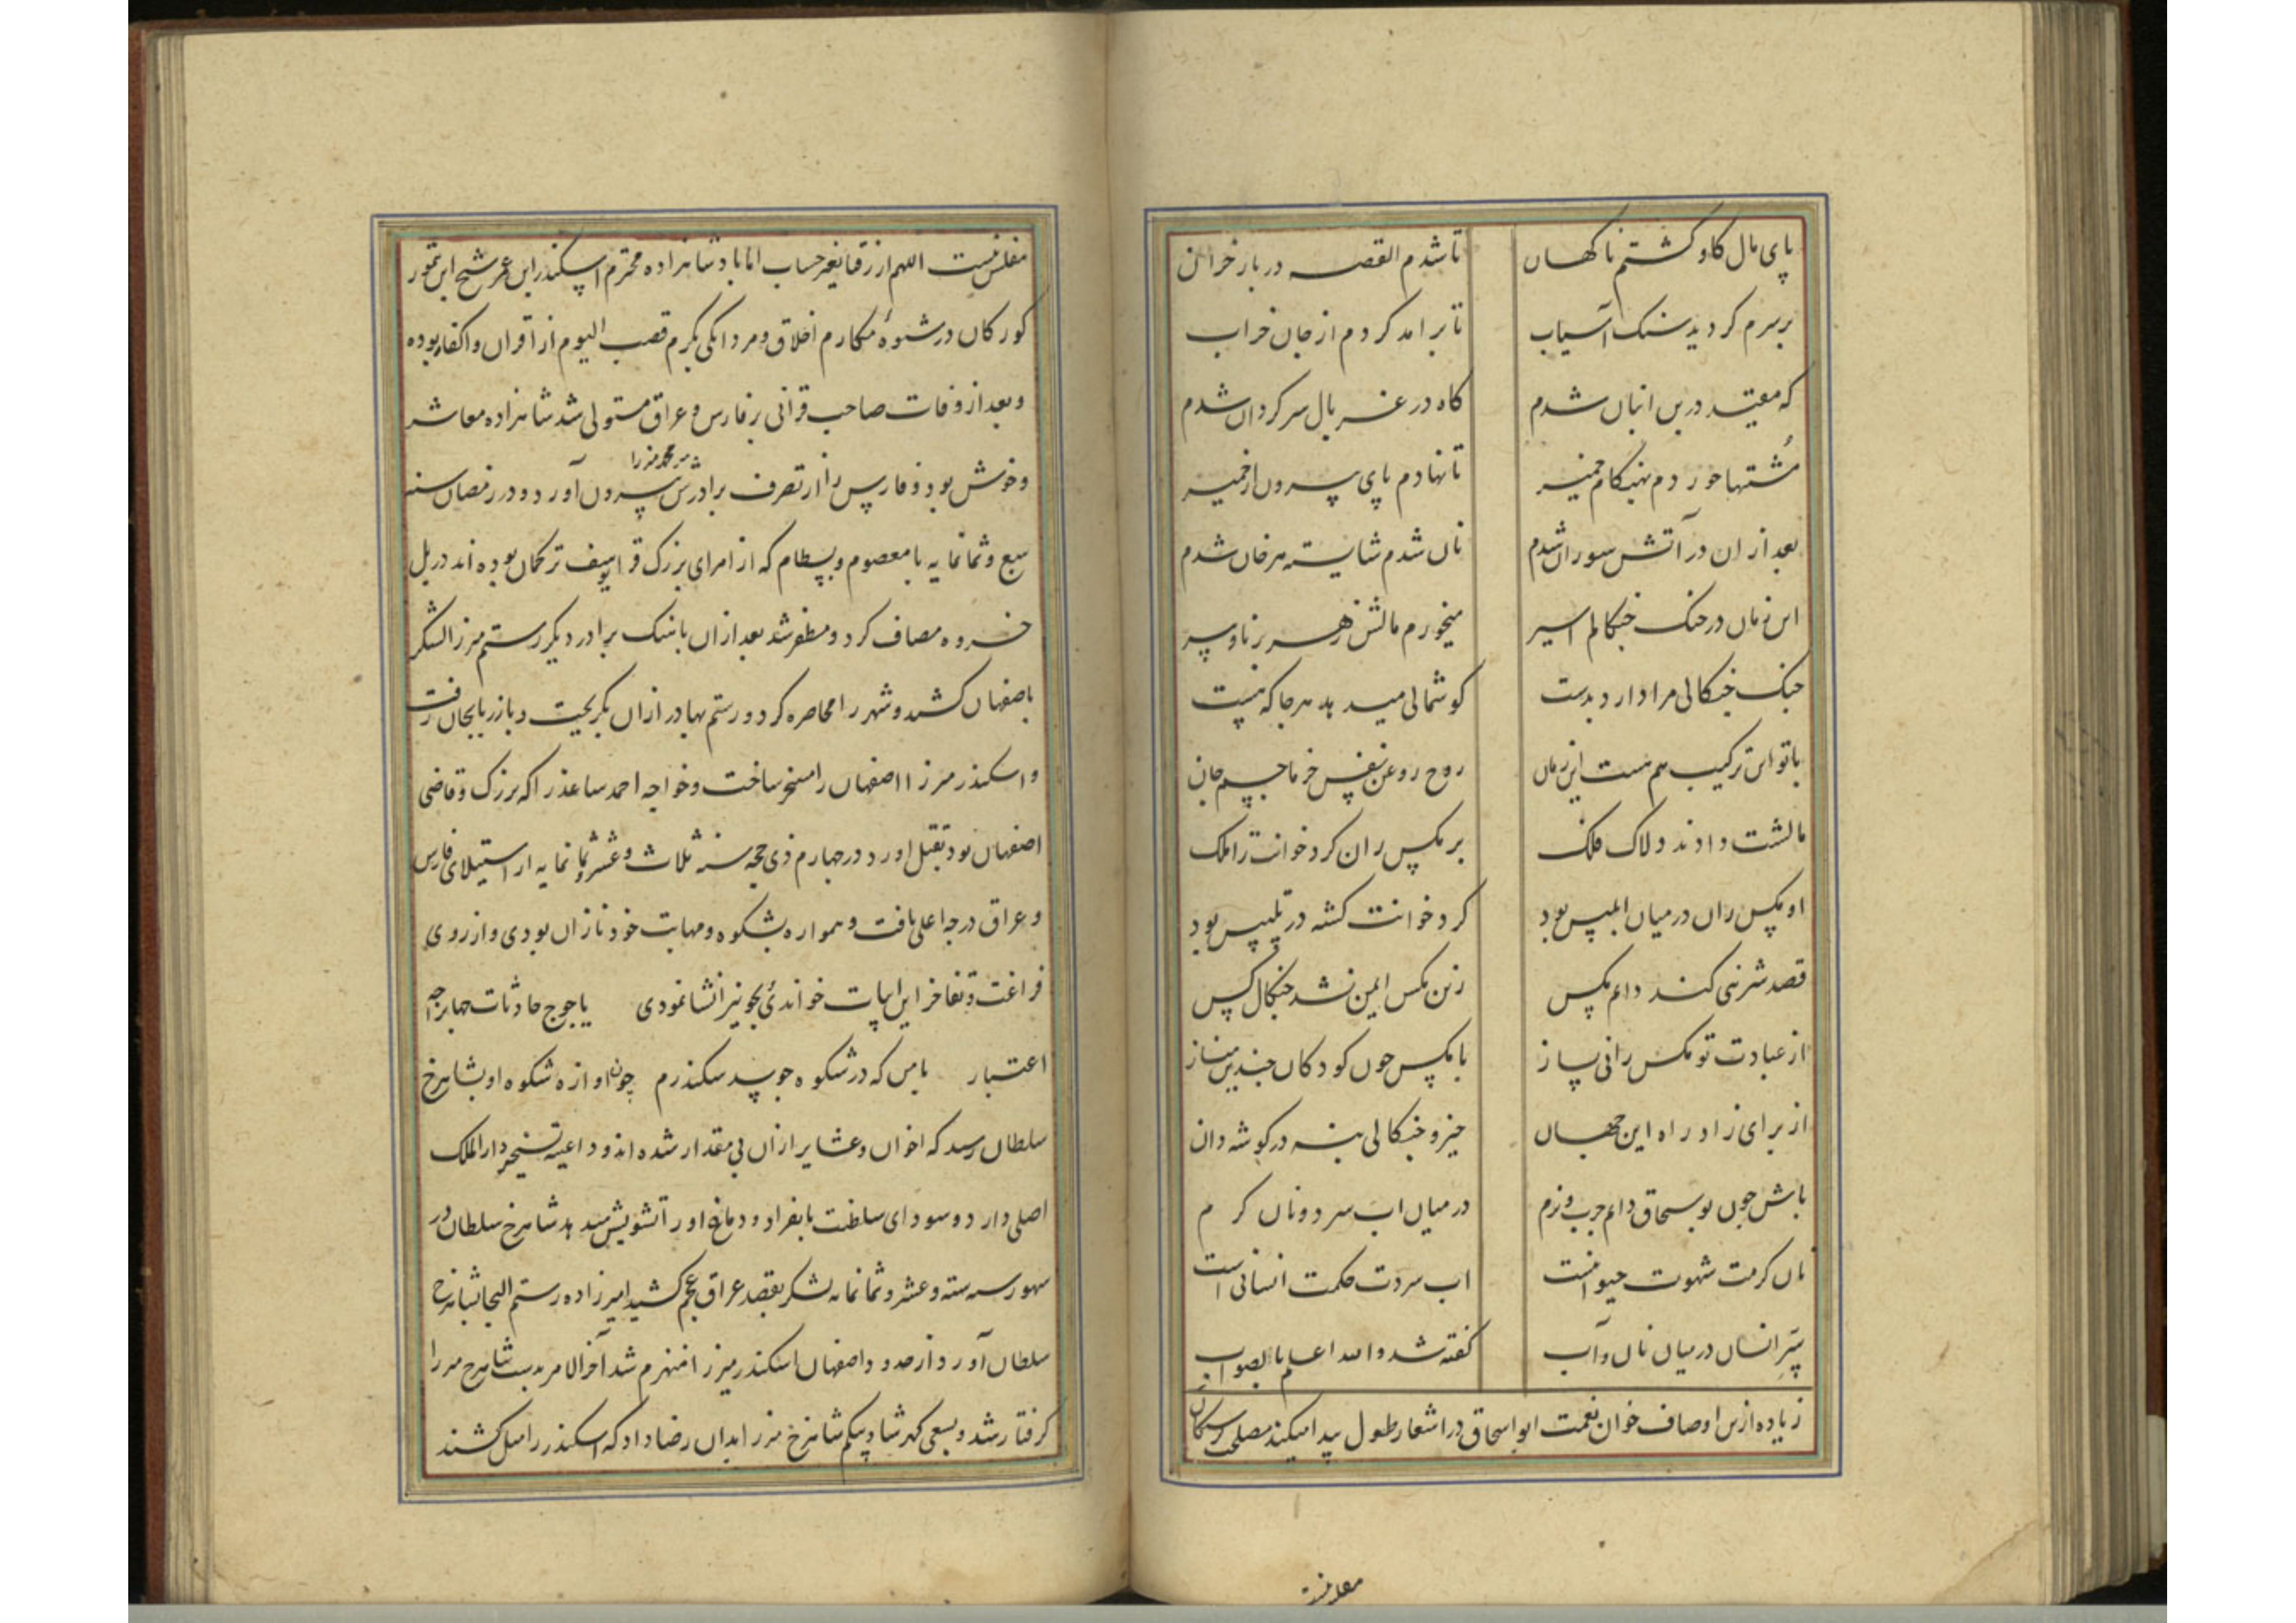 پای مال کاو کشتم ناکهان تا شدم القصه در بار خران
بر سرم کردید سنک آسیاب تا بر امد کردم از جان خراب
که مقید درین انبان شدم کاه در غربال سرکردان شدم
مُشتها خوردم بهنکام خمیر تا نهادم پای بیرون از خمیر
بعد از ان در آتش سوزان شدم نان شدم شایسته هر خان شدم
این زمان در جنک جنکالم اسیر میخورم مالش ز هر برنا و پیر
جنک جنکالی مرا دارد بدست کوشمالی میدهد هر جا که هست
با تو این ترکیب هم هست این زمان روح روغن نفس خرما جسم جان
مالشت دادند دلاک فلک بر مکس ران کرد خوانت را ملک
او مکس ران در میان ابلیس بود کرد خوانت کشته در تلبیس بود
قصد شیرنی کند دایم مکس زین مکس ایمن نشد جنکال کس
از عبادت تو مکس رانی بساز با مکس چون کودکان چندین مناز
از برای زاد راه این جهان خیز و جنکالی بنه در کوشه دان
باش چون بوسحاق دایم چرب و نرم در میان اب سرد و نان کرم
نان کرمت شهوت حیوانیست اب سردت حکمت انسانی است
سّر انسان در میان نان و آب کفته شد والله اعلم بالصواب
زیاده ازین اوصاف خوان نعمت ابو اسحاق در اشعار طول پیدا میکند مصلحت
مفلس نیست اللهم ارزقنا بغیر حساب اما پادشاهزاده محترم اسکندر ابن عمر شیخ ابن تمور
کورکان در شیوهٔ مکارم اخلاق و مردانکی بکرم قصب الیوم از اقران و اکفاء بوده
و بعد از وفات صاحب قرانی بر فارس و عراق مستولی شد شاهزاده معاشر
و خوش بود و فارس را از تصرف برادرش پیر محمد میرزا بیرون آورد و در رمضان سنه
سبع و ثمانمایه با معصوم و بسطام که از امرای بزرک قرا یوسف ترکمان بوده اند در پل
خسروه مصاف کرد و مظفر شد بعد از ان با برادر دیکر رستم میرزا لشکر
باصفهان کشید و شهر را محاصره کرد و رستم بهادر ازان بکریخت و بازربایجان رفت
و اسکندر میرزا اصفهان را مسخر ساخت و خواجه احمد ساعد را که بزرک و قاضی
اصفهان بود بقتل اورد و در چهارم ذی حجه سنه ثلاث و عشر و ثمانمایه از استیلای فارس
و عراق درجه اعلی یافت و همواره بشکوه و مهابت خود نازان بودی و از روی
فراغت و تفاخر این ابیات خواندی بخود نیز انشا نمودی یاجوج حادثات جهان را چه
اعتبار با من که در شکوه چو سد سکندرم چون اوازه شکوه او بشاهرخ
سلطان رسید که اخوان و عشایر ازان بی مقدار شده اند و داعیه تسخیر دار الملک
اصلی دارد و سودای سلطنت بانفراد دماغ او را تشویش میدهد شاهرخ سلطان در
شهور سنه سته و عشر و ثمانمایه لشکر بقصد عراق عجم کشید امیرزاده رستم التجا بشاهرخ
سلطان آورد و از حدود اصفهان اسکندر میرزا منهزم شد آخر الامر بدست شاهرخ میرزا
کرفتار شد و بسعی کهرشاد بیکم شاهرخ میرزا بدان رضا داد که اسکندر را میل کشند
مفلس نیست